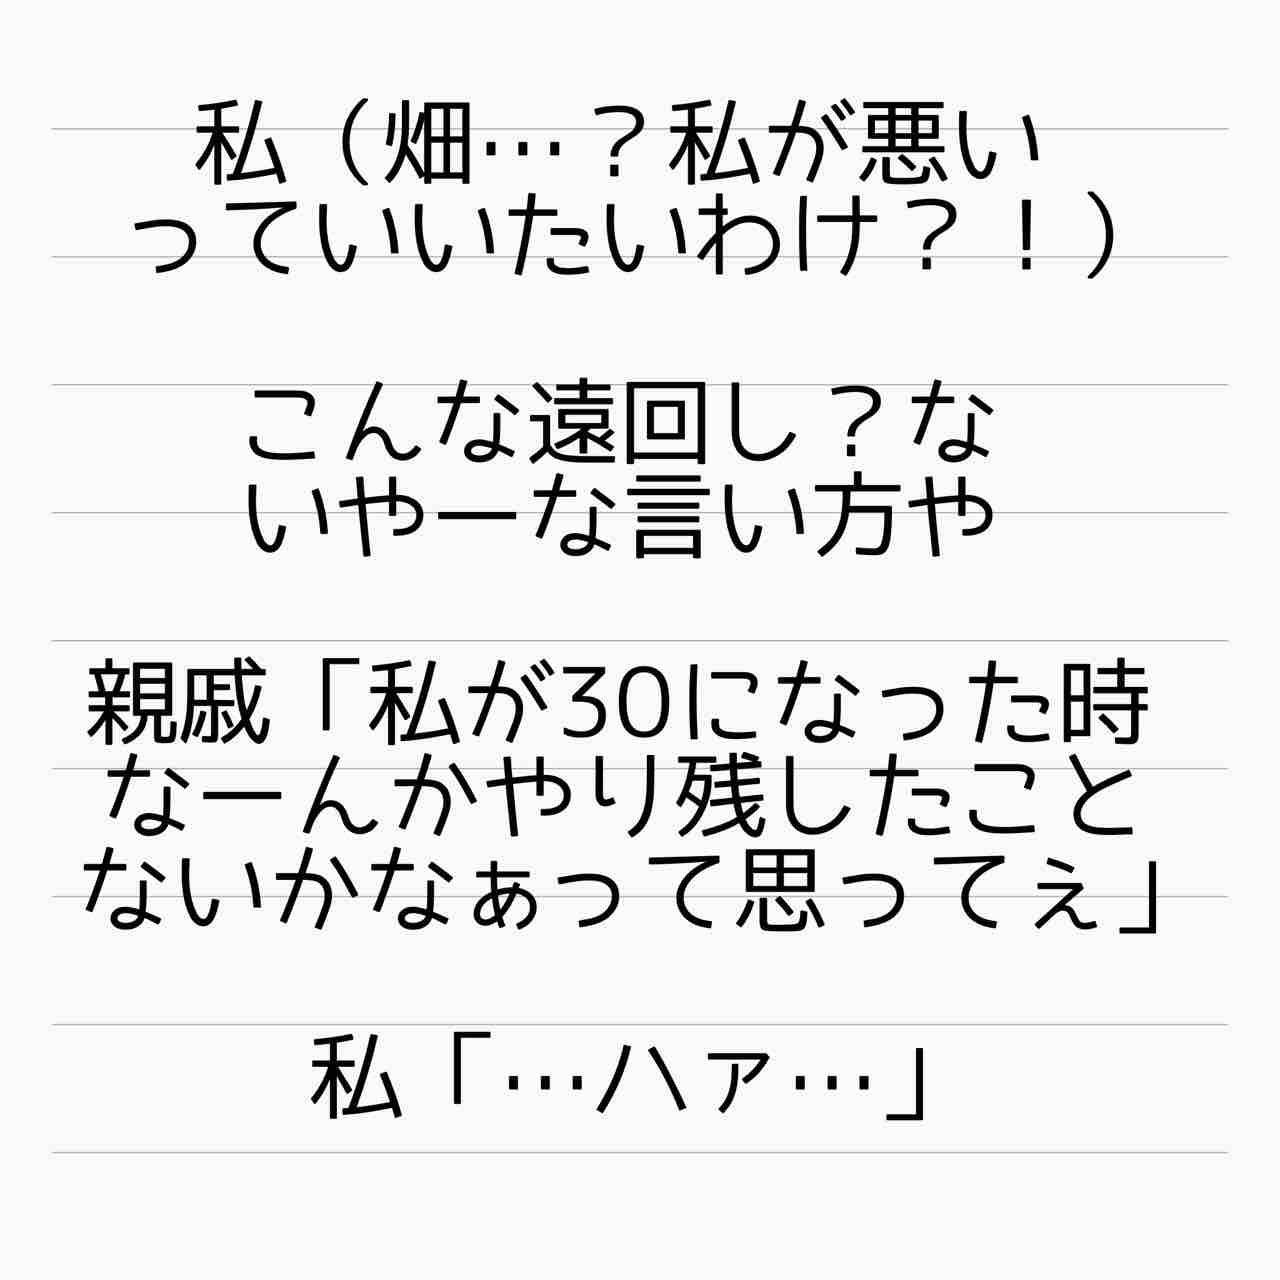 私（畑…？私が悪い
っていいたいわけ？！）
こんな遠回し？な
いやーな言い方や
親戚「私が30になった時
なーんかやり残したこと
ないかなぁって思ってぇ」
私「…ハァ…」